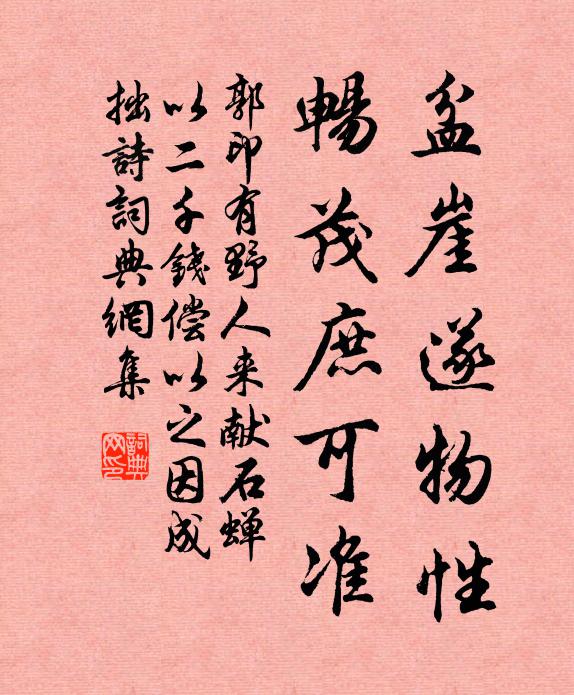 盆崖遂物性
暢茂庶可准
郭印有野人来献石蝉
以二千錢偿以之因成
拙詩詞典網集
詞典网印